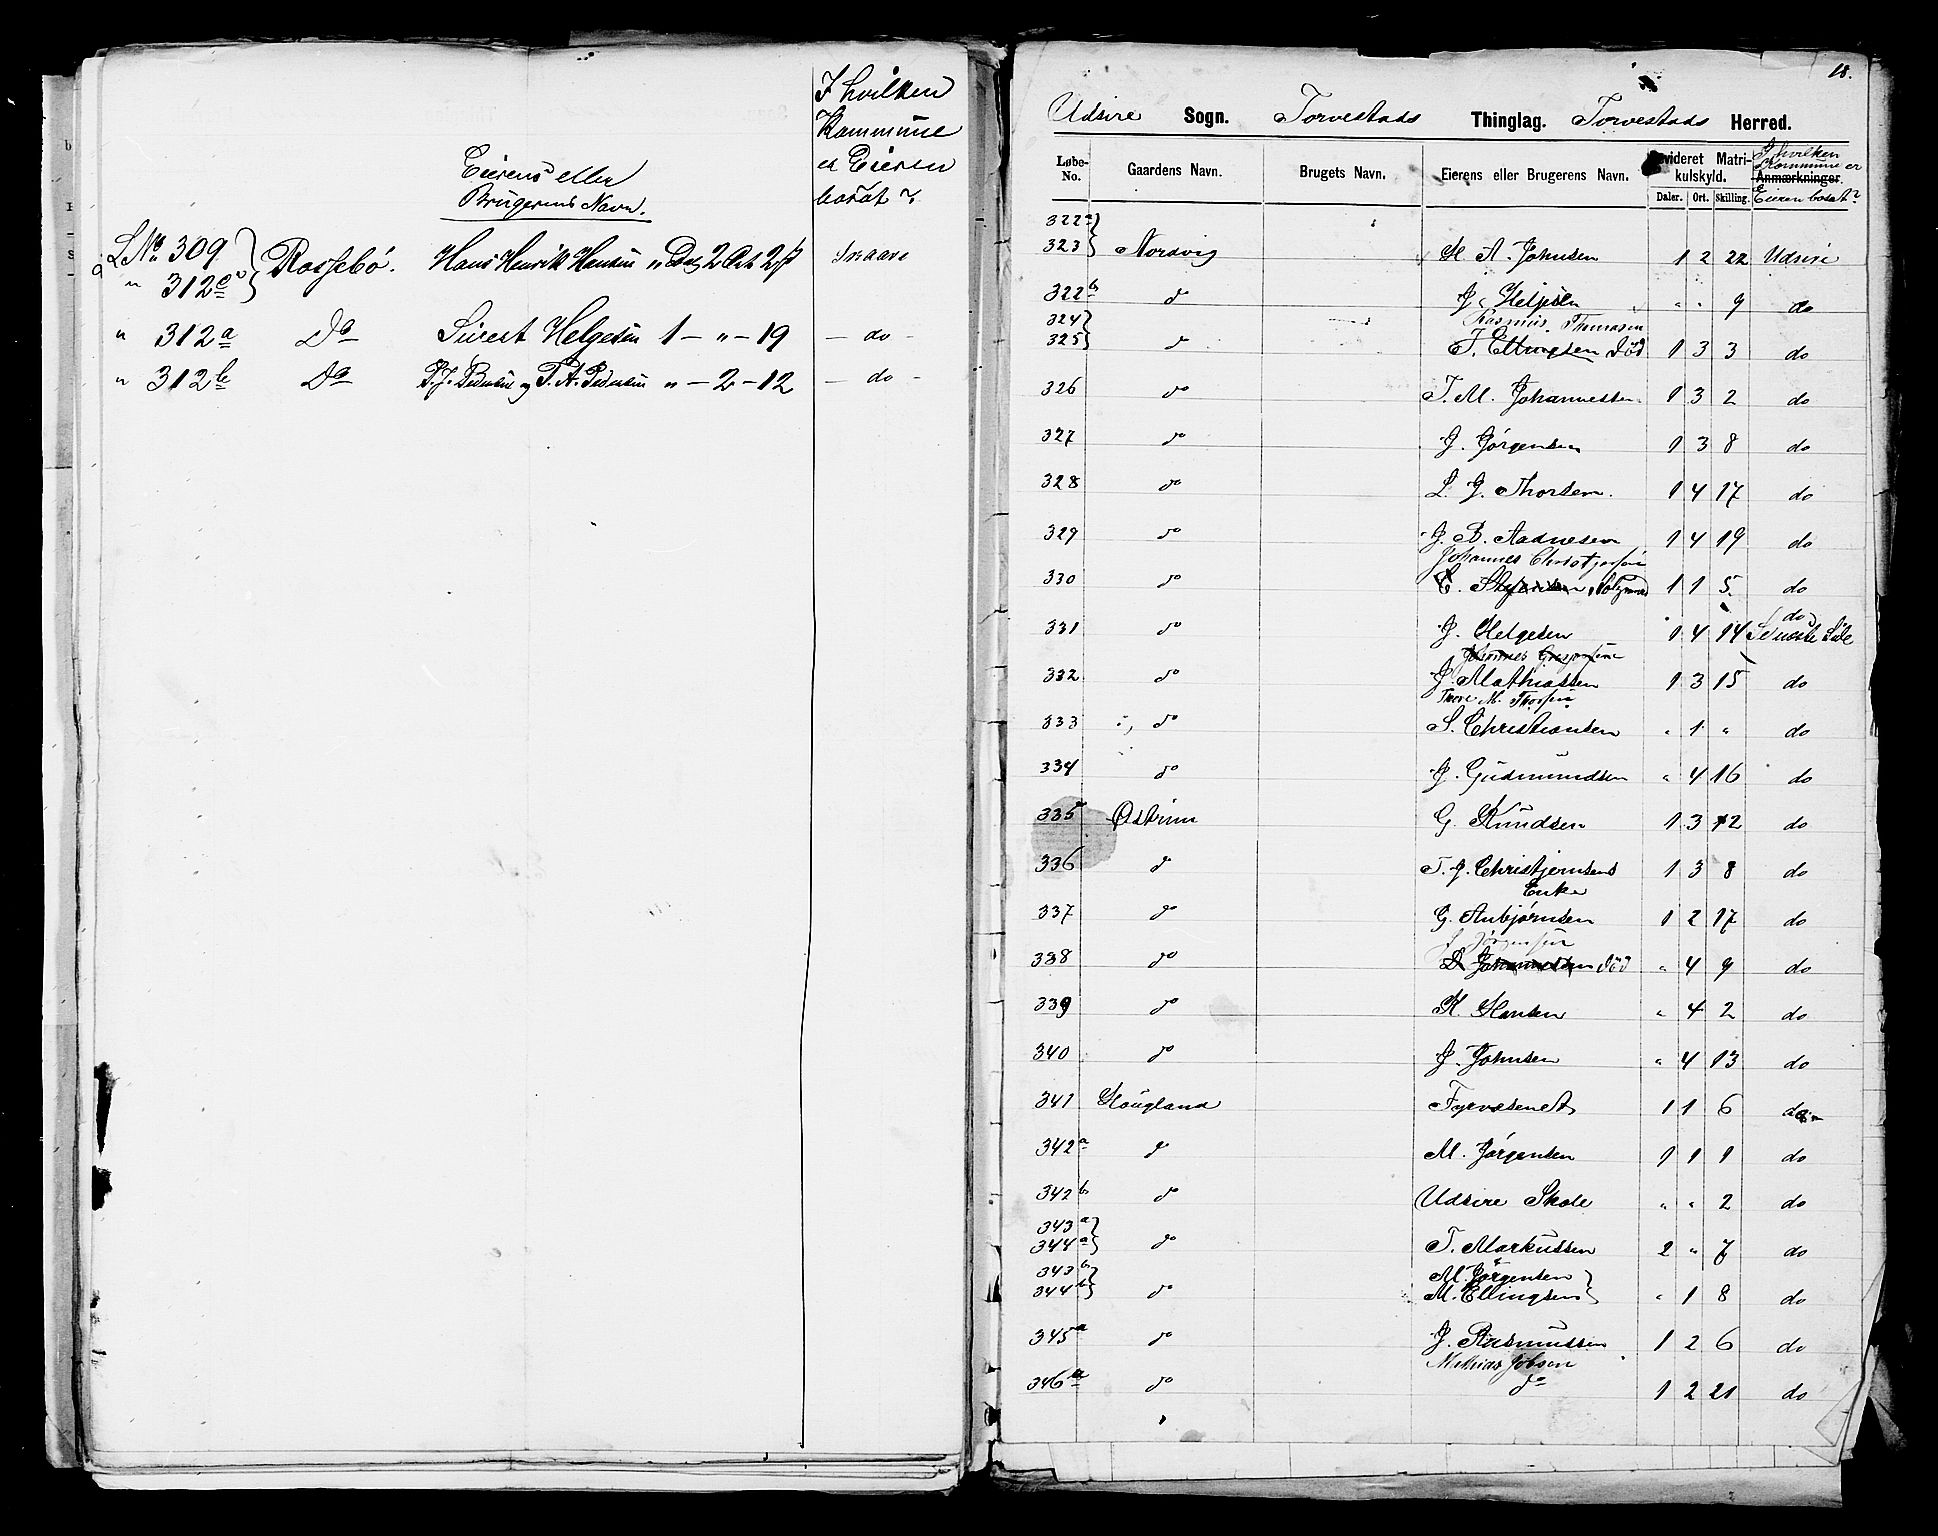 I hvilken
Kommune
er Eieren
bosat?
Eierens eller
Brugerens Navn.
LNo 309 Rossebö. Hans Henrik Hansen " Dal 2 Ort 2 ß
" 312c
" 312a Do Sivert Helgesen 1 - " - 19 - do -
" 312b Do P. J. Pedersen og P. A. Pedersen " - 2 - 12 - do -
18.
Udsire Sogn. Torvestads Thinglag. Torvestads Herred.
Løbe-No. Gaardens Navn. Brugets Navn. Eierens eller Brugerens Navn. Revideret Matrikulskyld. Anmærkninger.
Daler. Ort. Skilling.
I hvilken Kommune er Eieren bosat?
322a
323 Nordvig H. A. Johnsen 1 2 22 Udsire
322b do J. Helgesen " " 9 do
324 Rasmus Thomasen
325 do T. Ellingsen död 1 3 3 do
326 do T. M. Johannessen 1 3 2 do
327 do J. Jörgensen 1 3 8 do
328 do L. G. Thorsen 1 4 17 do
329 do J. B. Aadnesen 1 4 19 do
Johannes Christjansen
330 do E. 1 1 5 do
do
331 do J. Helgesen 1 4 14
Johannes
332 do J. Mathiassen 1 3 15 do
Tore M. Thorsen
333 do S. Christiansen " 1 " do
334 do J. Gudmundsen " 4 16 do
335 Östrim G. Knudsen 1 3 12 do
336 do T. G. Christjernsens 1 3 8 do
Enke
337 do G. Anbjörnsen 1 2 17 do
S. Jörgensen
338 do D. Johannessen död " 4 9 do
339 do K. Hansen " 4 2 do
340 do J. Johnsen " 4 13 do
341 Hougland Fyrvæsenet 1 1 6 do
342a do M. Jörgensen 1 1 1 do
342b do Udsire Skole " " 2 do
343a
344a do T. Markussen 2 " 7 do
343b M. Jörgensen
344b do M. Ellingsen " 1 8 do
345a do J. Rasmussen 1 2 6 do
Mathias Jobsen
346a do do 1 2 21 do